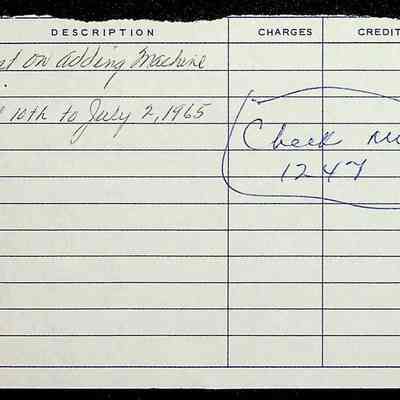 DESCRIPTION CHARGES CREDIT
on adding machine
10th to July 2, 1965
Check
1247